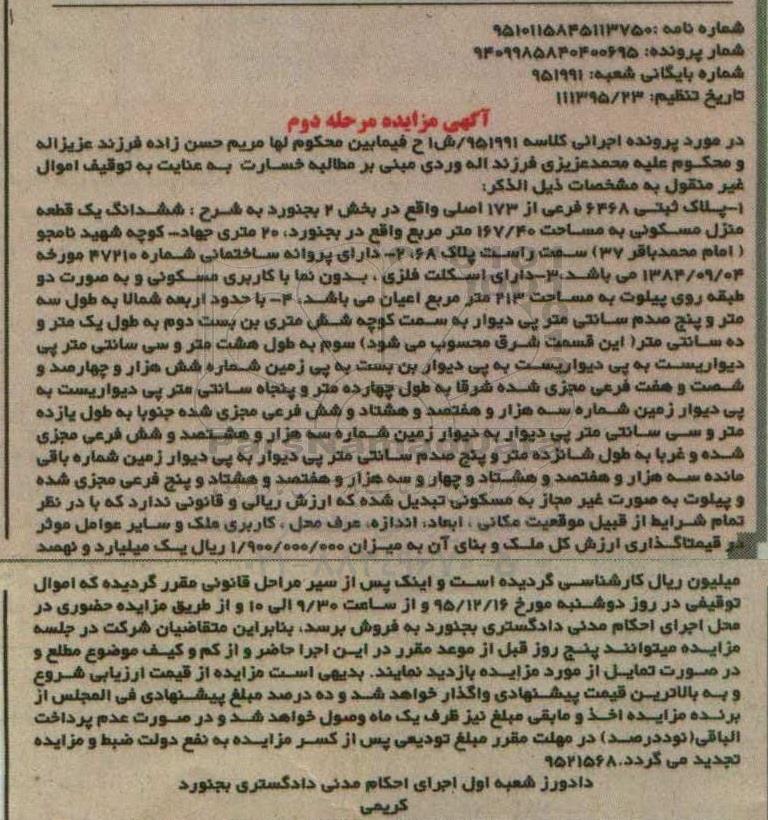 شماره نامه :۹۵۱۰۱۱۵۸۴۵۱۱۳۷۵۰
شمار پرونده: ۹۴۰۹۹۸۵۸۴۰۴۰۰۶۹۵
شماره بایگانی شعبه: ۹۵۱۹۹۱
تاریخ تنظیم: ۱۱۱۳۹۵/۲۳
آگهی مزایده مرحله دوم
در مورد پرونده اجرائی کلاسه ۹۵۱۹۹۱/ش۱ ح فیمابین محکوم لها مریم حسن زاده فرزند عزیزاله
و محکـوم علیه محمدعزیزی فرزند اله وردی مبنی بر مطالبه خسارت به عنایت به توقیف اموال
غیر منقول به مشخصات ذیل الذکر:
۱-پـلاک ثبتـی ۶۴۶۸ فرعی از ۱۷۳ اصلی واقع در بخش ۲ بجنورد به شـرح : ششدانگ یک قطعه
منزل مسـکونی به مسـاحت ۱۶۷/۴۰ متر مربع واقع در بجنورد، ۲۰ متری جهاد- کوچه شهید نامجو
( امام محمدباقر ۳۷) سـمت راسـت پلاک ۶۸، ۲- دارای پروانه سـاختمانی شـماره ۴۷۲۱۰ مورخه
۱۳۸۴/۰۹/۰۴ می باشـد.۳-دارای اسـکلت فلزی ، بـدون نما با کاربری مسـکونی و به صورت دو
طبقه روی پیلوت به مسـاحت ۲۱۳ متر مربع اعیان می باشد. ۴- با حدود اربعه شمالا به طول سه
متر و پنج صدم سـانتی متر پی دیوار به سـمت کوچه شـش متری بن بست دوم به طول یک متر و
ده سـانتی متر( این قسـمت شـرق محسـوب می شود) سوم به طول هشت متر و سی سانتی متر پی
دیواریست به پی دیواریست به پی دیوار بن بست به پی زمین شماره شش هزار و چهارصد و
شـصت و هفت فرعی مجزی شـده شرقا به طول چهارده متر و پنجاه سـانتی متر پی دیواریست به
پی دیوار زمین شـماره سـه هزار و هفتصد و هشتاد و شش فرعی مجزی شده جنوبا به طول یازده
متر و سـی سـانتی متر پی دیوار به دیوار زمین شـماره سـه هزار و هشـتصد و شش فرعی مجزی
شـده و غربا به طول شـانزده متر و پنج صدم سـانتی متر پی دیوار به پی دیوار زمین شماره باقی
مانده سـه هزار و هفتصد و هشـتاد و چهار و سه هزار و هفتصد و هشتاد و پنج فرعی مجزی شده
و پیلوت به صورت غیر مجاز به مسـکونی تبدیل شده که ارزش ریالی و قانونی ندارد که با در نظر
تمام شـرایط از قبیل موقعیت مکانی ، ابعاد، اندازه، عرف محل ، کاربری ملک و سـایر عوامل موثر
در قیمتاگـذاری ارزش کل ملـک و بنای آن به میـزان ۱/۹۰۰/۰۰۰/۰۰۰ ریال یـک میلیارد و نهصد
میلیون ریال کارشناسـی گردیده است و اینک پس از سیر مراحل قانونی مقرر گردیده که اموال
توقیفی در روز دوشـنبه مورخ ۹۵/۱۲/۱۶ و از سـاعت ۹/۳۰ الی ۱۰ و از طریق مزایده حضوری در
محل اجرای احکام مدنی دادگستری بجنورد به فروش برسد، بنابراین متقاضیان شرکت در جلسه
مزایده میتوانند پنج روز قبل از موعد مقرر در ایـن اجرا حاضر و از کم و کیف موضوع مطلع و
در صـورت تمایـل از مورد مزایـده بازدید نمایند. بدیهی اسـت مزایده از قیمت ارزیابی شـروع
و به بالاتریـن قیمت پیشـنهادی واگذار خواهد شـد و ده درصد مبلغ پیشـنهادی فی المجلس از
برنده مزایـده اخذ و مابقی مبلغ نیز ظرف یک ماه وصول خواهد شـد و در صـورت عدم پرداخت
الباقی(نوددرصـد) در مهلت مقرر مبلغ تودیعی پس از کسـر مزایـده به نفع دولت ضبط و مزایده
تجدید می گردد.۹۵۲۱۵۶۸
دادورز شعبه اول اجرای احکام مدنی دادگستری بجنورد
کریمی